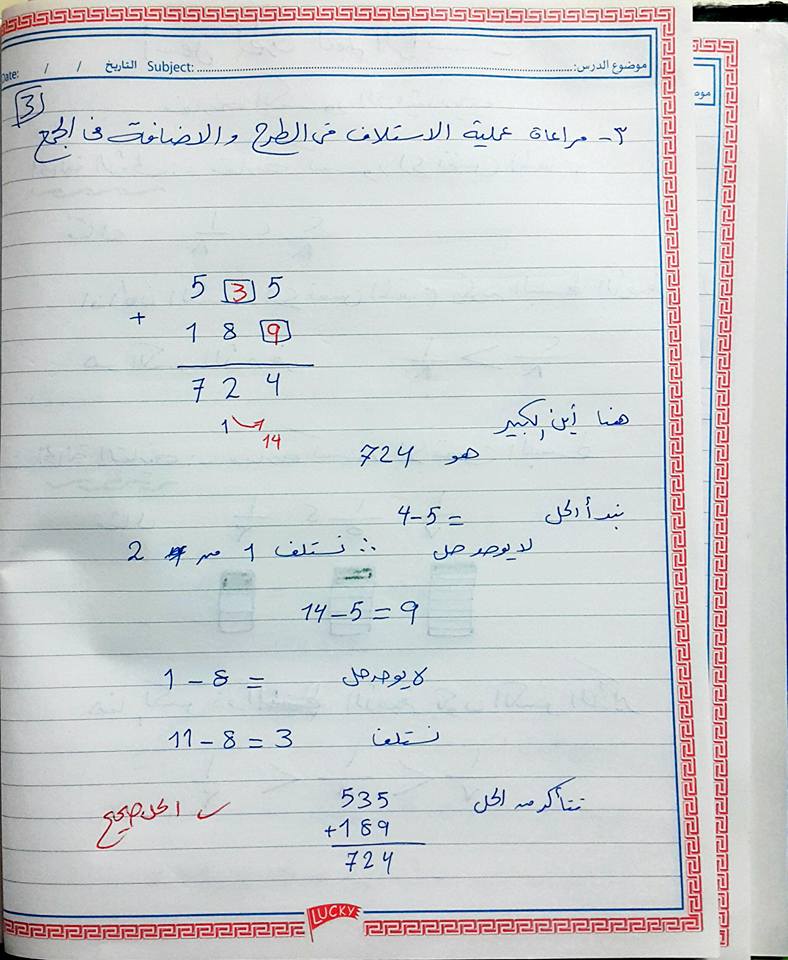 موضوع الدرس: Subject: التاريخ / / Date:
3
٣- مراعاة عملية الاستلاف فى الطرح والاضافة فى الجمع
5 3 5
+
1 8 9
7 2 4
1 14
هنا أين الكبير
هو 724
نبدأ الحل = 4-5
لا يوجد حل ∴ نستلف 1 من 2
14-5=9
لا يوجد حل 1-8=
نستلف 11-8=3
نتأكد من الحل 535
+189
724
✓ الحل صحيح
LUCKY